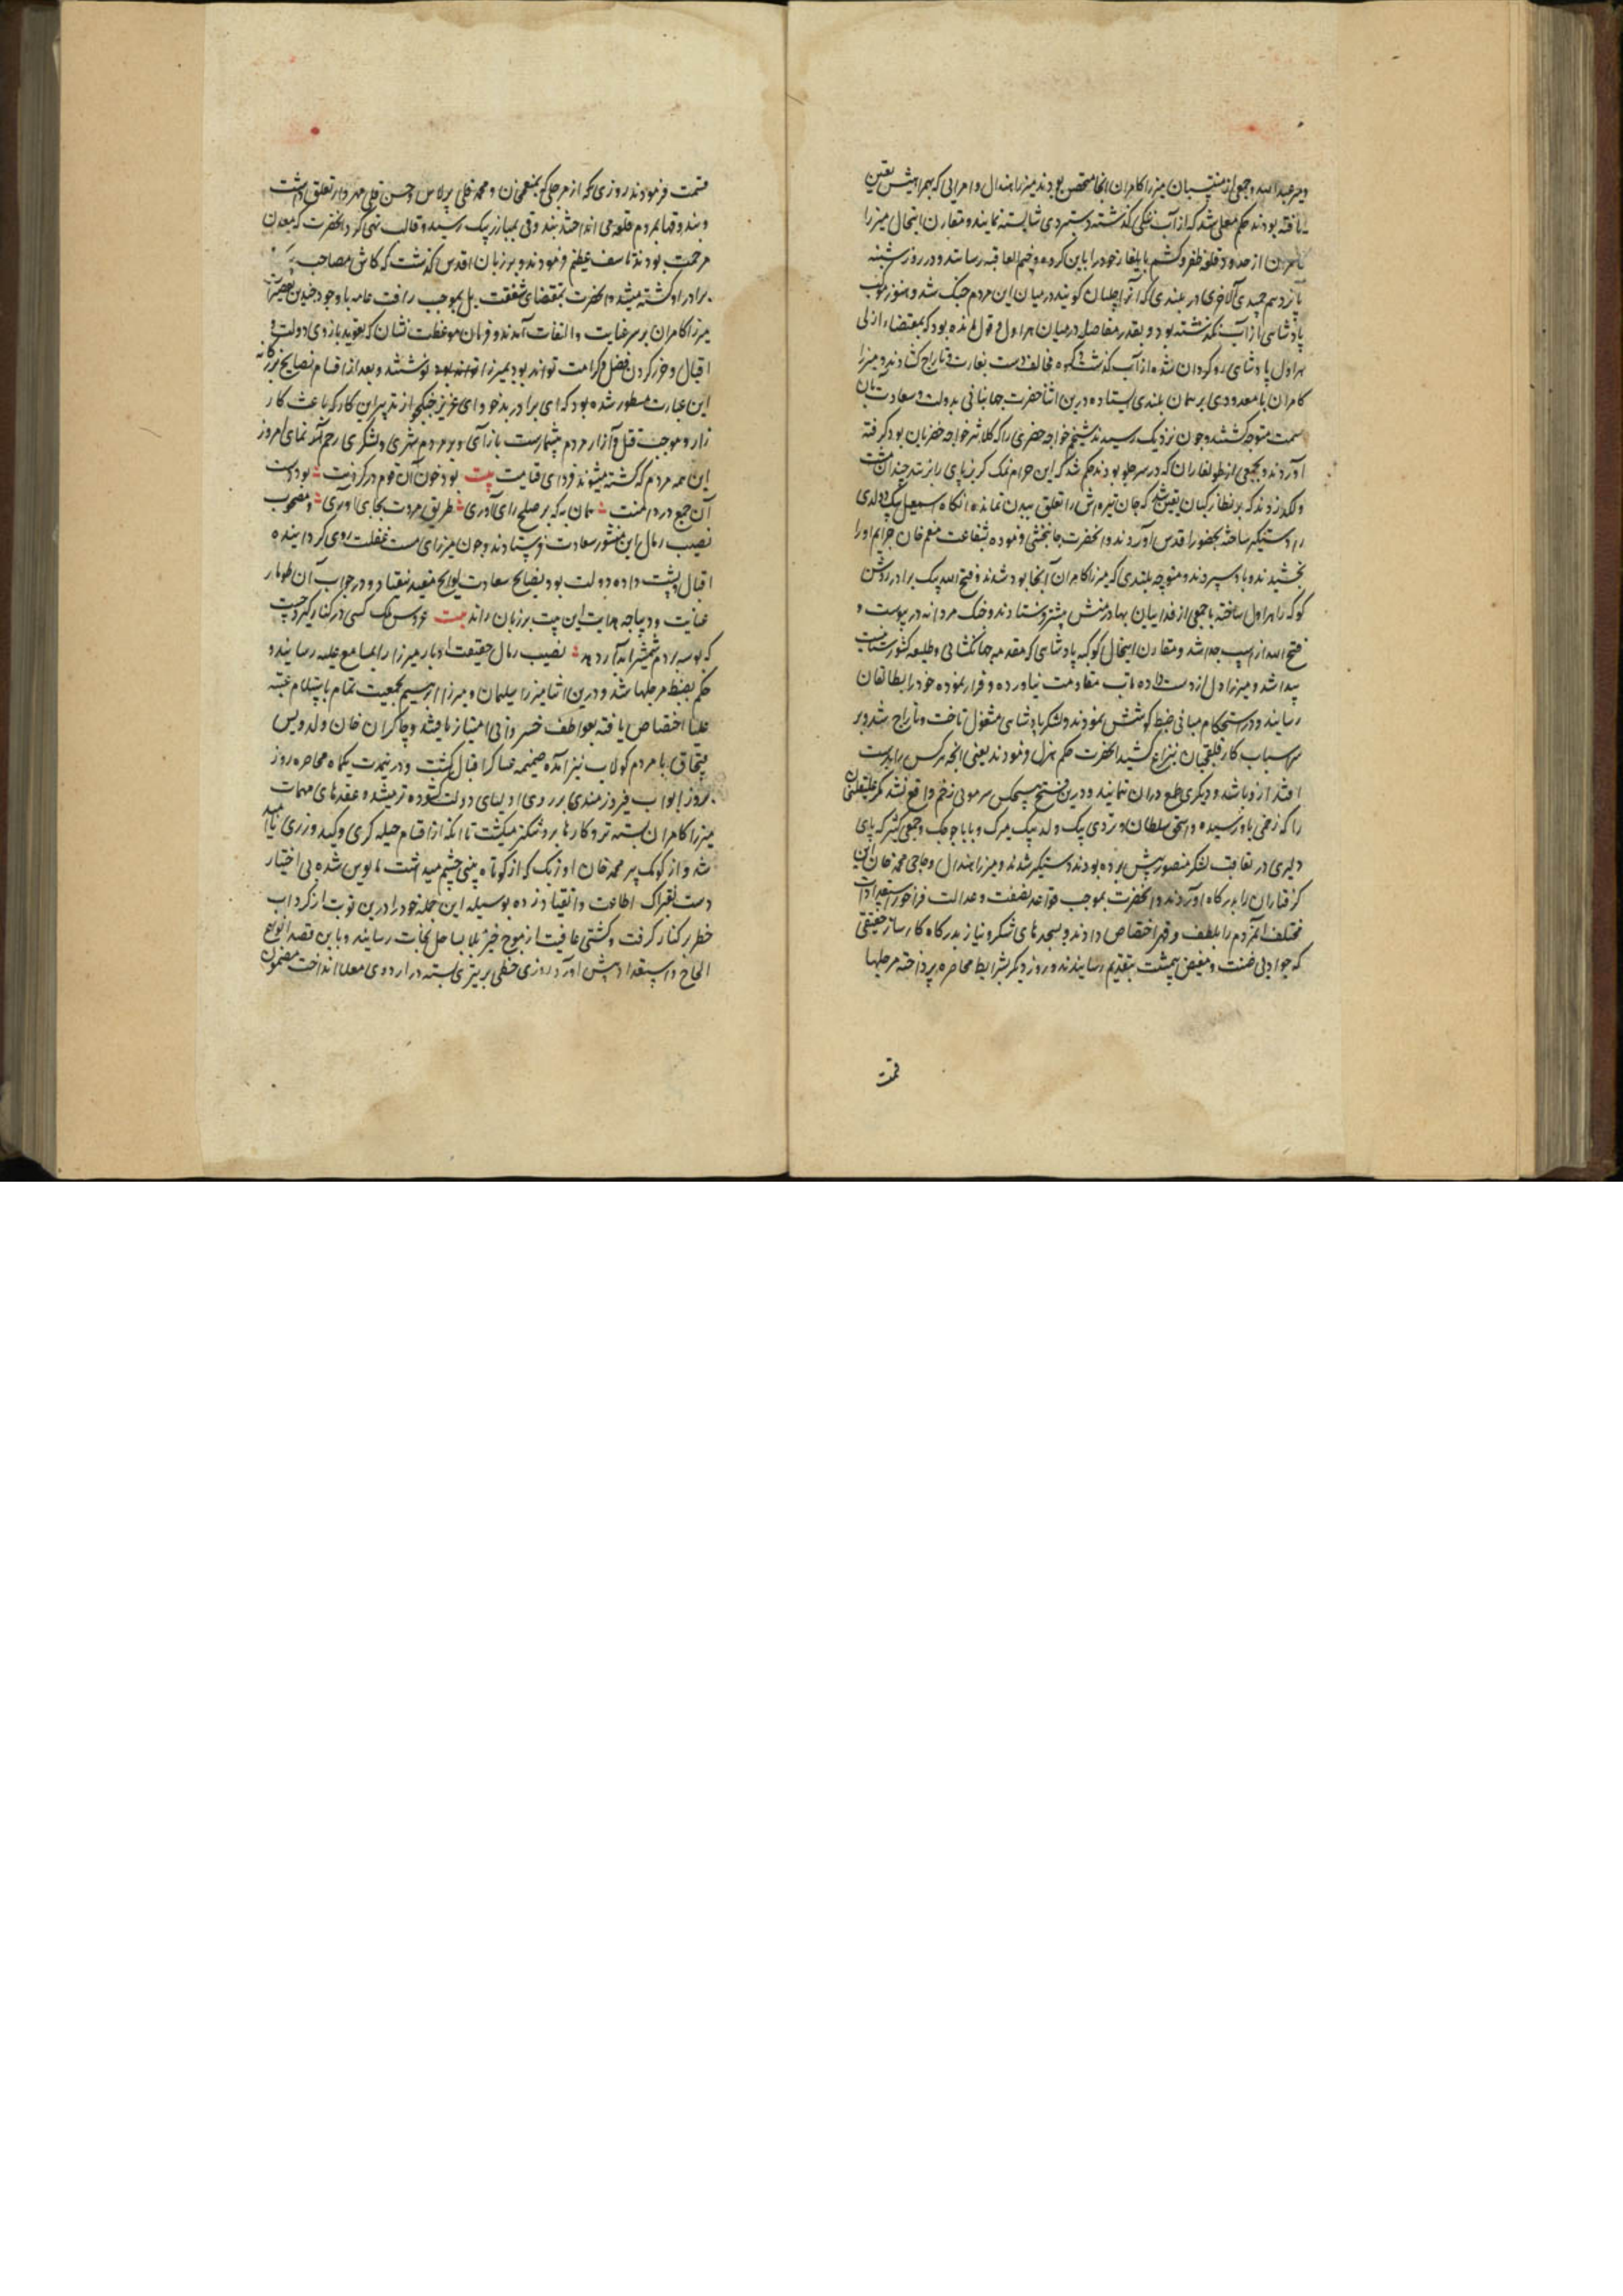 ومیر عبدالله و جمعی از منتسبان میرزا کامران آنجا متحصن بودند میرزا هندال و امرایی که بهمراهیش تعین
یافته بودند حکم معلی شد که از آب بنگی گذشته دستبردی شایسته نمایند و مقارن اینحال میرزا
کامران از حدود قلعه ظفر و کشم بایلغار خود را باین گروه وخیم العاقبه رساند و در روز شنبه
پانزدهم جمیدی الاخری در بلندی که آنرا چلسان گویند در میان این مردم جنگ شد و هنوز موکب
پادشاهی از آب نگذشته بود و بقدر مفاصله در میان هراول و قول مانده بود که بمقتضاء ازلی
هراول پادشاهی رو گردان شده از آب گذشت و گروه مخالف دست بغارت و تاراج گشادند و میرزا
کامران با معدودی بر همان بلندی ایستاده درین اثنا حضرت جهانبانی بدولت و سعادت بآن
سمت متوجه گشتند و چون نزدیک رسیدند شیخم خواجه خضری را که کلانتر خواجه خضریان بود گرفته
آوردند و بجمعی از طولغاران که در سر جلو بودند حکم شد که این حرام نمک گریزپای را بزنند چندان مشت
و لگد زدند که بر نظارگیان یقین شد که جان تیره‌اش را تعلق ببدن نمانده آنگاه اسمعیل بیک دولدی
را دستگیر ساخته بحضور اقدس آوردند و آنحضرت جانبخشی فرموده بشفاعت منعم خان جرایم او را
بخشیدند و باو سپردند و متوجه بلندی که میرزا کامران آنجا بود شدند و فتح الله بیک برادر روشن
کوکه را هراول ساخته با جمعی از فداییان بهادر منش پیشتر فرستادند و جنگ مردانه در پیوست و
فتح الله از اسپ جدا شد و مقارن اینحال کوکبه پادشاهی که مقدمه جهانگشایی و طلیعه کشورستانیست
پیدا شد و میرزا دل از دست داده تاب مقاومت نیاورده و فرار نموده خود را بطالقان
رسانید و در استحکام مبانی ضبط کوشش نمودند و لشکر پادشاهی مشغول تاخت و تاراج شد و بر
سر اسباب کار قلقچیان بنزاع کشید آنحضرت حکم هرل فرمودند یعنی آنچه هر کس را بدست
افتد ازو باشد و دیگری طمع در آن ننمایند و درین فتح هیچکس سرمویی زخم واقع نشد مگر علیقلی خان
را که زخمی باو رسیده و اسحق سلطان و تردی بیک ولد بیک میرک و بابا چوچک و جمعی کثیر که پای
دلیری در تعاقب لشکر منصور پیش برده بودند دستگیر شدند و میرزا هندال و حاجی محمد خان این
گرفتاران را بدرگاه آوردند و آنحضرت بموجب قواعد نصفت و عدالت فراخور استعدادات
مختلف آنمردم را بلطف و قهر اختصاص دادند و سجدهای شکر و نیاز بدرگاه کارساز حقیقی
که جواد بی ضنت و مفیض بیمنت بتقدیم رسانیدند و روز دیگر بشرایط محاصره پرداخته مرجلها
قسمت
قسمت فرمودند روزی که از مرجلی که بمنعم خان و محمد قلی برلاس و حسن قلی مهردار تعلق داشت
و بندوقها بمردم قلعه می انداختند بندوقی بمبارز بیک رسید و قالب تهی کرد آنحضرت که معدن
مرحمت بودند تاسف عظیم فرمودند و بر زبان اقدس گذشت که کاش مصاحب بیک
برادر او کشته میشد آنحضرت بمقتضای شفقت بل بموجب رافت عامه با وجود چنین تقصیرات
میرزا کامران بر سر عنایت و التفات آمدند و فرمان موعظت نشان که تعویذ بازوی دولت و
اقبال و حرز گردن فضل و کرامت تواند بود بمیرزا نوشتند و بعد از اقسام نصایح بزرگانه
این عبارت مسطور شده بود که ای برادر بدخو و ای عزیز جنگجو از تدبیر این کار که باعث کار
زار و موجب قتل و آزار مردم بیشمارست باز آی و بر مردم شهری و لشکری رحم آر نمای امروز
این همه مردم که کشته میشوند فردای قیامت بیت بود خون آن قوم در گردنت بود دست
آن جمع در دامنت همان به که بر صلح رای آوری طریق مروت بجای آوری و مصحوب
نصیب رمال این منشور سعادت فرستادند و چون میرزای مست غفلت روی گرداننده
اقبال و پشت داده دولت بود بنصایح سعادت لوایح مفید نیفتاد و در جواب آن طومار
عنایت و دیباجه هدایت این بیت بر زبان راند بیت عروس ملک کسی در کنار گیرد چست
که بوسه بر دم شمشیر آبدار دهد نصیب رمال حقیقت ادبار میرزا را بمسامع علیه رسانید و
حکم بضبط مرجلها شد و درین اثنا میرزا سلیمان و میرزا ابرهیم بجمعیت تمام باستلام عتبه
علیا اختصاص یافته بعواطف خسروانی امتیاز یافتند و چاکر ان خان ولد ویس
قبچاق با مردم کولاب نیز آمده ضمیمه عساکر اقبال گشت و درینمدت یکماه محاصره روز
بروز ابواب فیروزمندی بر روی اولیای دولت گشوده تر میشد و عقدهای مهمات
میرزا کامران بسته تر و کارها برو تنگتر میگشت تا آنکه از اقسام حیله گری و کید و زری ناامید
شد و از کومک پیر محمد خان اوزبک که از کوتاه بینی چشم میداشت مایوس شده بی اختیار
دست بفتراک اطاعت و انقیاد زده بوسیله این حیله خود را درین نوبت از گرداب
خطر برکنار گرفت و کشتی عافیت از موج خیز بلا بساحل نجات رسانید و باین قصد انواع
الحاح و استعداد پیش آورد روزی خطی بر تیری بسته در اردوی معلا انداخت مضمون